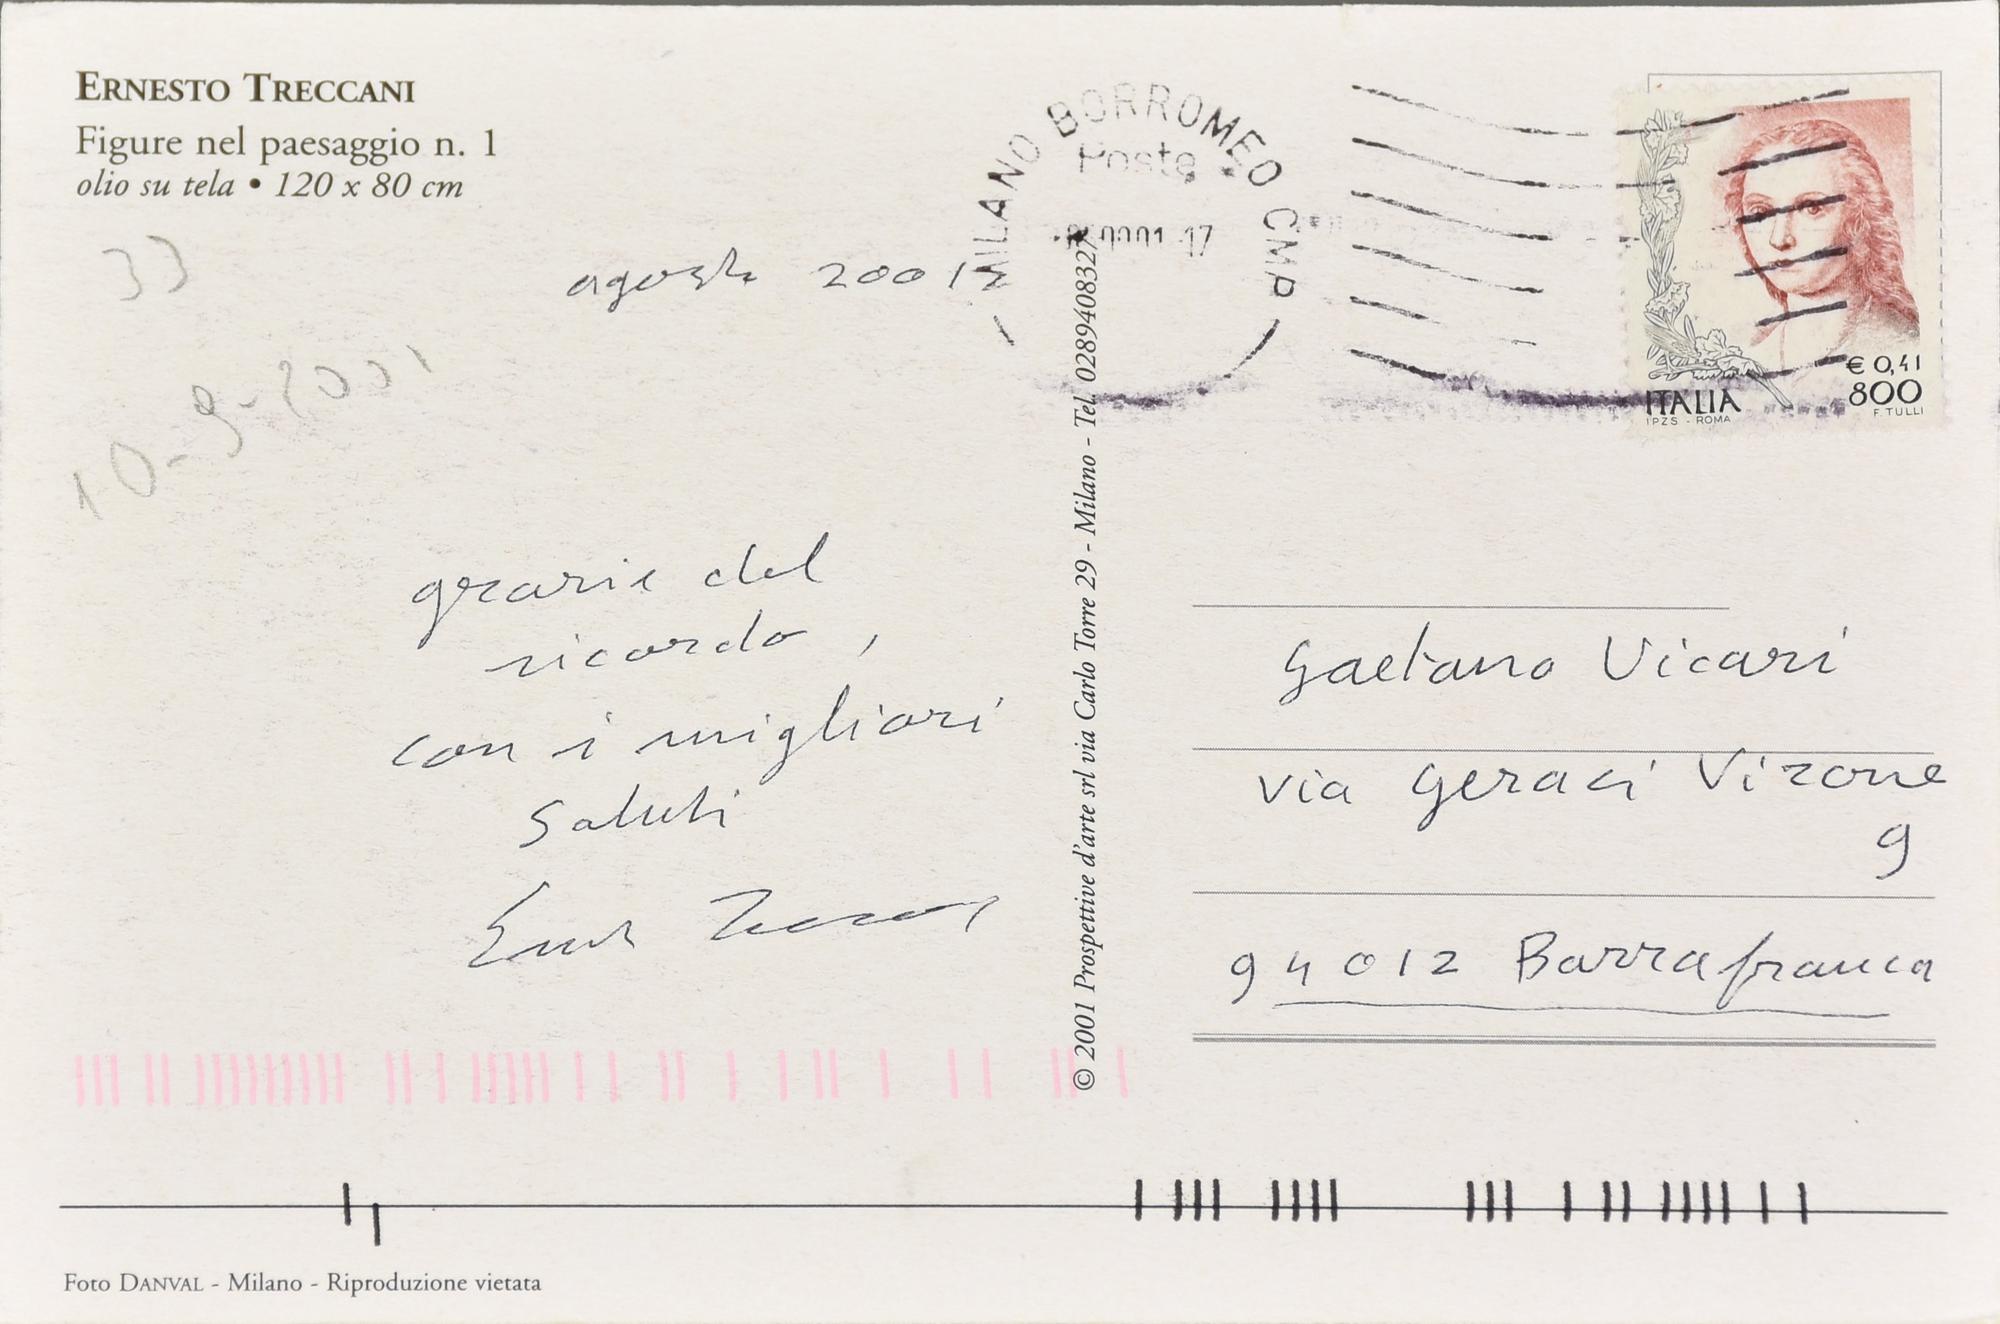 ERNESTO TRECCANI
Figure nel paesaggio n. 1
olio su tela • 120 x 80 cm
33
10-9-2001
agosto 2001
grazie del
ricordo,
con i migliori
saluti
MILANO BORROMEO CMP
Poste
€ 0,41
800
ITALIA
F. TULLI
I.P.Z.S. - ROMA
© 2001 Prospettive d'arte srl via Carlo Torre 29 - Milano - Tel. 0289408327
Gaetano Vicari
via Geraci Vizone
9
94012 Barrafranca
Foto DANVAL - Milano - Riproduzione vietata